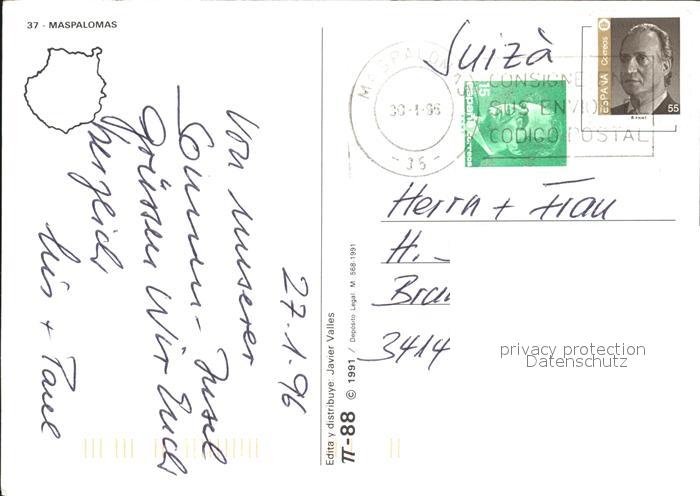 37 - MASPALOMAS
27.1.96
Von unserer
Sonnen-Insel
Grüssen Wir Euch
herzlich
+ Paul
Edita y distribuye: Javier Valles
π-88 © 1991 / Depósito Legal M. 568-1991
Suizà
MASPALOM
30-1-96
-35-
CONSIGNE
SUS ENVIO
CODIGO POSTAL
15
españa
correos
ESPAÑA
Correos
55
Herrn + Frau
H.
3414
privacy protection
Datenschutz